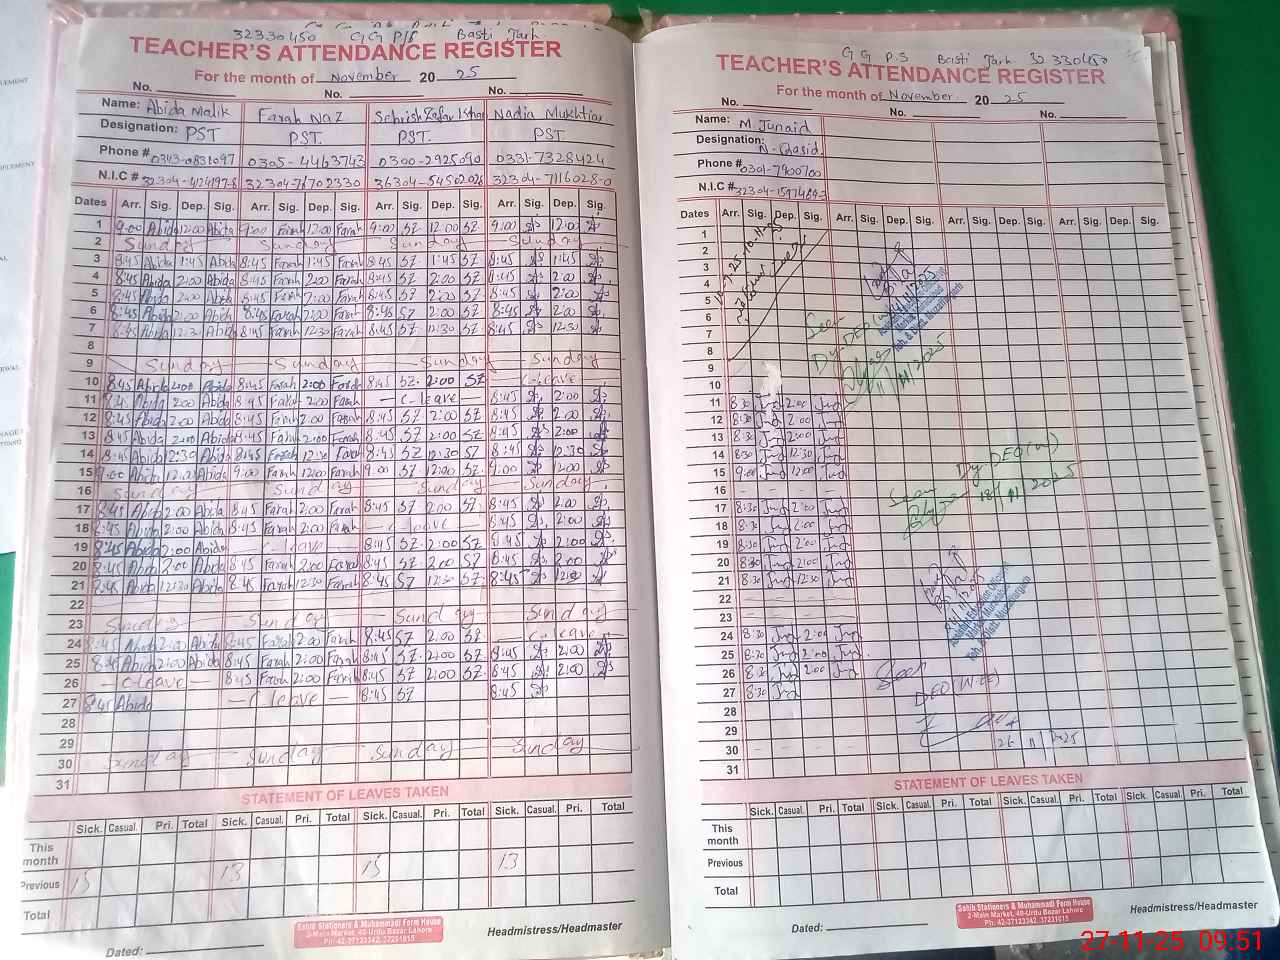 32330450 GG P/S Basti Jarh
TEACHER'S ATTENDANCE REGISTER
For the month of November 20 25
No. No. No.
Name: Abida Malik Farah Naz Sehrish Zafar Nadia Mukhtiar
Designation: PST PST. PST. PST
Phone # 0343-0831097 0305-4463743 0300-2925090 0331-7328424
N.I.C # 32304-4124197-8 32304-76702330 36304-54502028 32304-7116028-0
Dates Arr. Sig. Dep. Sig. Arr. Sig. Dep. Sig. Arr. Sig. Dep. Sig. Arr. Sig. Dep. Sig.
1 9:00 Abida 12:00 Abida 9:00 Farah 12:00 Farah 9:00 SZ 12:00 SZ 9:00 12:00
2 Sunday Sunday Sunday Sunday
3 8:45 Abida 1:45 Abida 8:45 Farah 1:45 Farah 8:45 SZ 1:45 SZ 8:45 1:45
4 8:45 Abida 2:00 Abida 8:45 Farah 2:00 Farah 8:45 SZ 2:00 SZ 8:45 2:00
5 8:45 Abida 2:00 Abida 8:45 Farah 2:00 Farah 8:45 SZ 2:00 SZ 8:45 2:00
6 8:45 Abida 2:00 Abida 8:45 Farah 2:00 Farah 8:45 SZ 2:00 SZ 8:45 2:00
7 8:45 Abida 12:30 Abida 8:45 Farah 12:30 Farah 8:45 SZ 12:30 SZ 8:45 12:30
8
9 Sunday Sunday Sunday Sunday
10 8:45 Abida 2:00 Abida 8:45 Farah 2:00 Farah 8:45 SZ 2:00 SZ C-leave
11 8:45 Abida 2:00 Abida 8:45 Farah 2:00 Farah C-leave 8:45 2:00
12 8:45 Abida 2:00 Abida 8:45 Farah 2:00 Farah 8:45 SZ 2:00 SZ 8:45 2:00
13 8:45 Abida 2:00 Abida 8:45 Farah 2:00 Farah 8:45 SZ 2:00 SZ 8:45 2:00
14 8:45 Abida 12:30 Abida 8:45 Farah 12:30 Farah 8:45 SZ 12:30 SZ 8:45 12:30
15 9:00 Abida 12:00 Abida 9:00 Farah 12:00 Farah 9:00 SZ 12:00 SZ 9:00 12:00
16 Sunday Sunday Sunday Sunday
17 8:45 Abida 2:00 Abida 8:45 Farah 2:00 Farah 8:45 SZ 2:00 SZ 8:45 2:00
18 8:45 Abida 2:00 Abida 8:45 Farah 2:00 Farah C-leave 8:45 2:00
19 8:45 Abida 2:00 Abida C-leave 8:45 SZ 2:00 SZ 8:45 2:00
20 8:45 Abida 2:00 Abida 8:45 Farah 2:00 Farah 8:45 SZ 2:00 SZ 8:45 2:00
21 8:45 Abida 12:30 Abida 8:45 Farah 12:30 Farah 8:45 SZ 12:30 SZ 8:45 12:30
22
23 Sunday Sunday Sunday Sunday
24 8:45 Abida 2:00 Abida 8:45 Farah 2:00 Farah 8:45 SZ 2:00 SZ C-leave
25 8:45 Abida 2:00 Abida 8:45 Farah 2:00 Farah 8:45 SZ 2:00 SZ 8:45 2:00
26 C-leave 8:45 Farah 2:00 Farah 8:45 SZ 2:00 SZ 8:45 2:00
27 8:45 Abida C leave 8:45 SZ 8:45
28
29
30 Sunday Sunday Sunday Sunday
31
STATEMENT OF LEAVES TAKEN
Sick. Casual. Pri. Total Sick. Casual. Pri. Total Sick. Casual. Pri. Total Sick. Casual. Pri. Total
This month
Previous 15 13 15 13
Total
Sahib Stationers & Muhammadi Form House
2-Main Market, 40-Urdu Bazar Lahore
Ph: 42-37123342, 37231615
Dated: Headmistress/Headmaster
GG P.S Basti Jarh 32330450
TEACHER'S ATTENDANCE REGISTER
For the month of November. 20 25
No. No. No.
Name: M. Junaid
Designation: N-Qasid.
Phone # 0301-7900700
N.I.C #
Dates Arr. Sig. Dep. Sig. Arr. Sig. Dep. Sig. Arr. Sig. Dep. Sig. Arr. Sig. Dep. Sig.
1
2
3
4
5
6
7
8
9
10
11 8:30 Jnd 2:00 Jnd
12 8:30 Jnd 2:00 Jnd
13 8:30 Jnd 2:00 Jnd
14 8:30 Jnd 12:30 Jnd
15 9:00 Jnd 12:00 Jnd
16
17 8:30 Jnd 2:00 Jnd
18 8:30 Jnd 2:00 Jnd
19 8:30 Jnd 2:00 Jnd
20 8:30 Jnd 2:00 Jnd
21 8:30 Jnd 12:30 Jnd
22
23
24 8:30 Jnd 2:00 Jnd
25 8:30 Jnd 2:00 Jnd
26 8:30 Jnd 2:00 Jnd
27 8:30 Jnd
28
29
30
31
Seen
Dy. DEO (W)
11/11/2025
Seen Dy DEO (W)
18/11/2025
Seen
DEO (W-EE)
26/11/2025
STATEMENT OF LEAVES TAKEN
Sick. Casual. Pri. Total Sick. Casual. Pri. Total Sick. Casual. Pri. Total Sick. Casual. Pri. Total
This month
Previous
Total
Sahib Stationers & Muhammadi Form House
2-Main Market, 40-Urdu Bazar Lahore
Ph: 42-37123342, 37231615
Dated: Headmistress/Headmaster
27-11-25 09:51